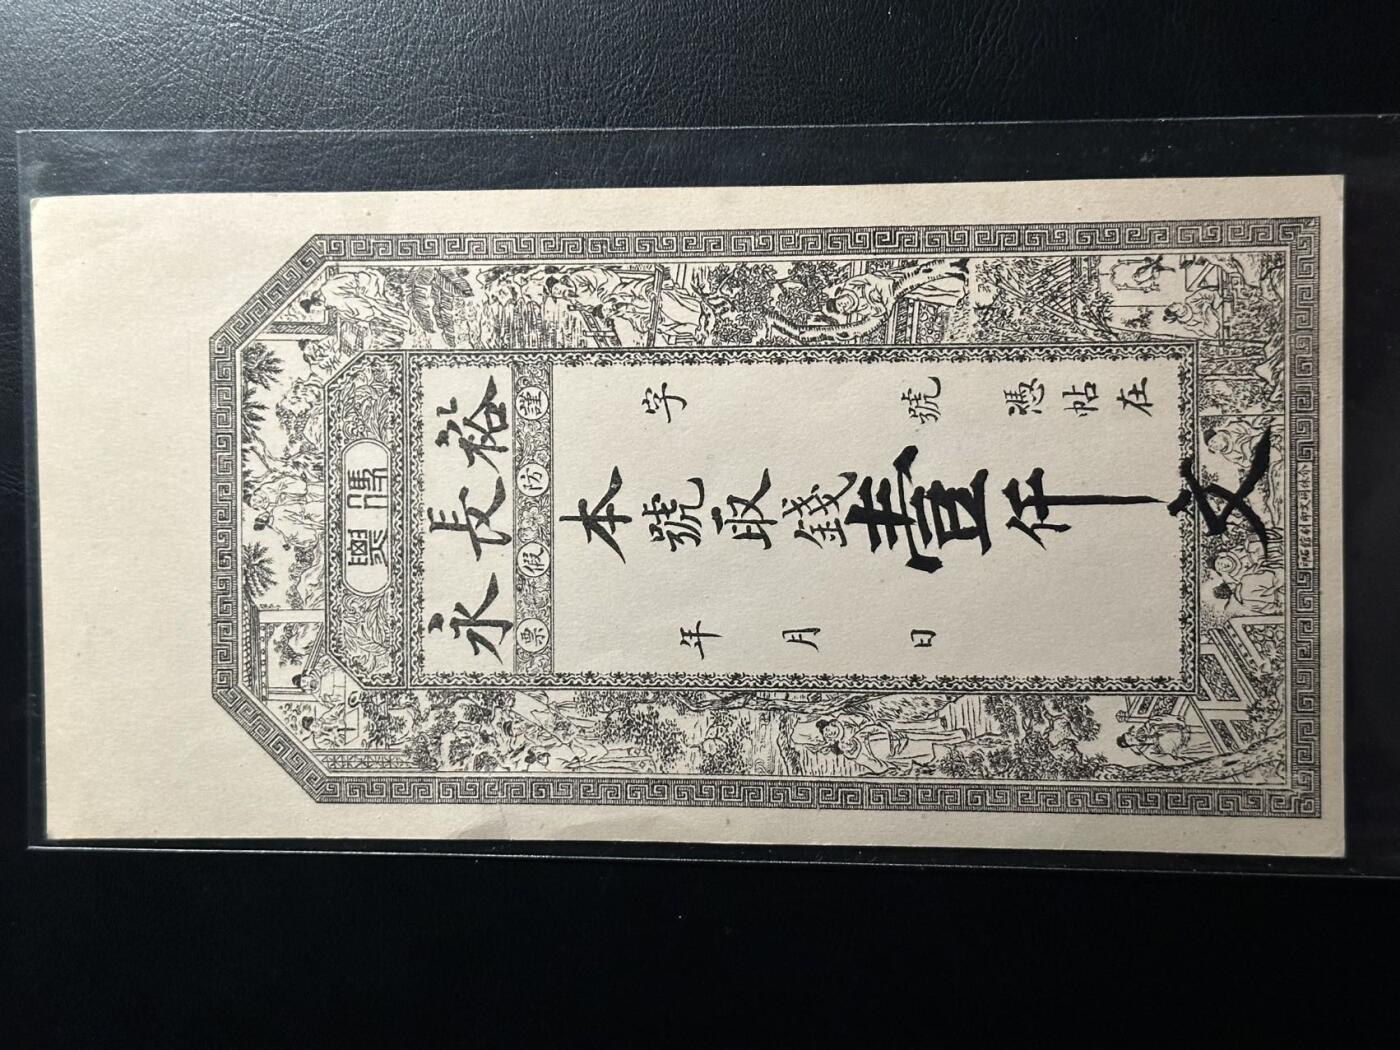 博興
裕長永
謹防假票
字號憑帖在
本號取錢壹仟文
年月日